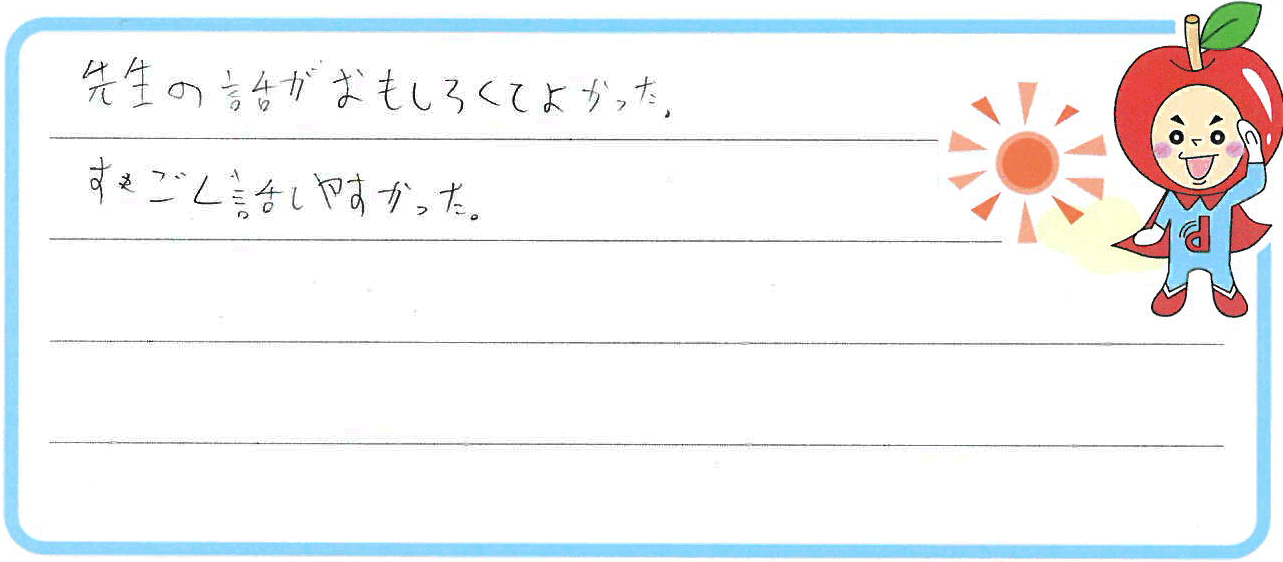 先生の話がおもしろくてよかった。
すごく話しやすかった。